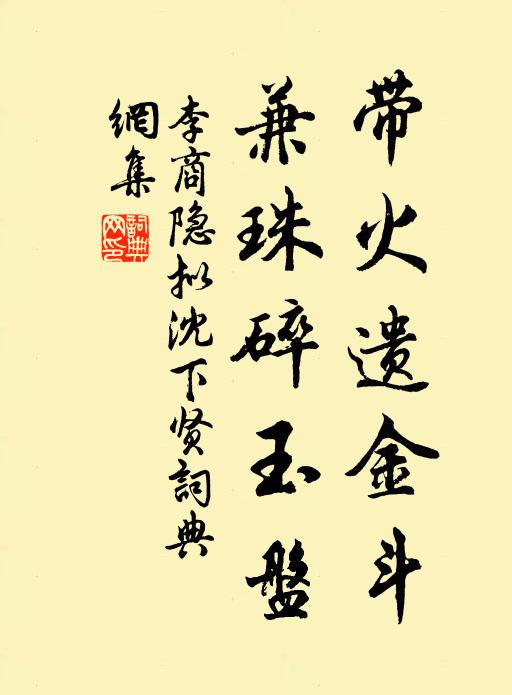 带火遗金斗
兼珠碎玉盘
李商隐拟沈下贤詞典
網集
詞典網印